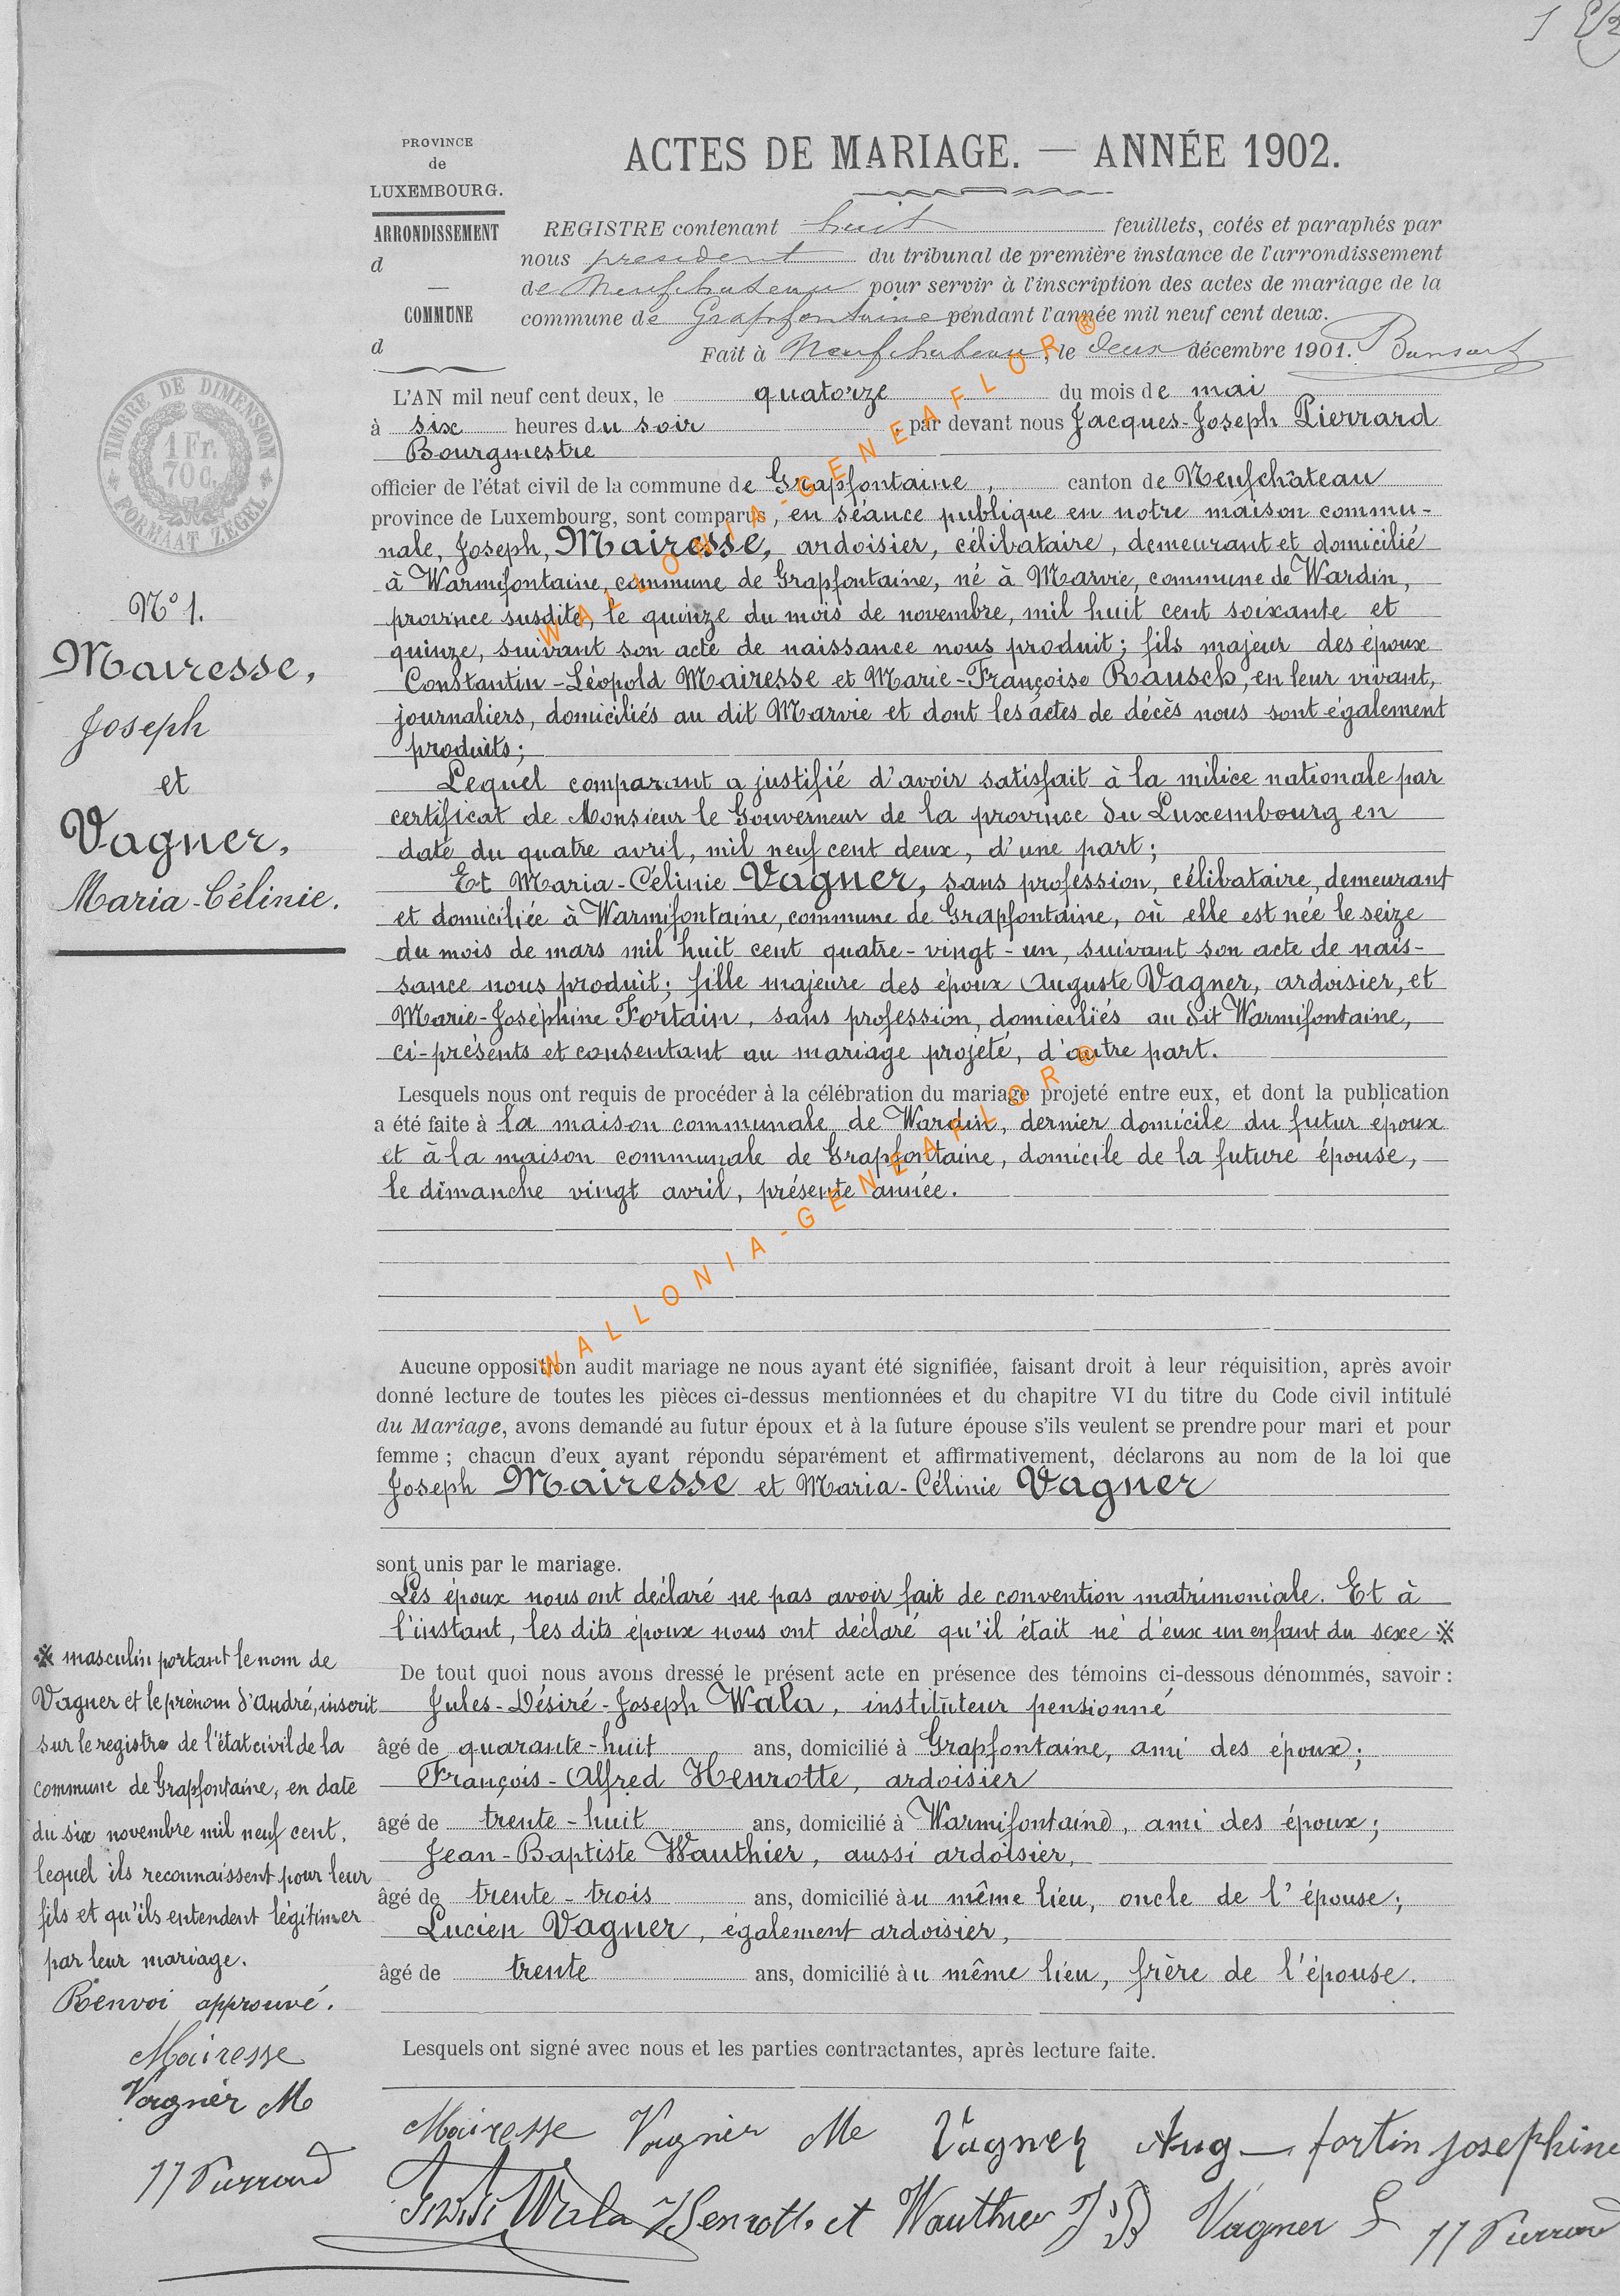 PROVINCE
de
LUXEMBOURG.
ARRONDISSEMENT
d
COMMUNE
d
ACTES DE MARIAGE. — ANNÉE 1902.
REGISTRE contenant huit feuillets, cotés et paraphés par
nous president du tribunal de première instance de l'arrondissement
de Neufchateau pour servir à l'inscription des actes de mariage de la
commune de Grapfontaine pendant l'année mil neuf cent deux.
Fait à Neufchateau, le deux décembre 1901.
TIMBRE DE DIMENSION
1 Fr.
70 C.
FORMAAT ZEGEL
L'AN mil neuf cent deux, le quatorze du mois de mai
à six heures du soir, par devant nous Jacques-Joseph Pierrard
Bourgmestre
officier de l'état civil de la commune de Grapfontaine, canton de Neufchâteau
province de Luxembourg, sont comparus, en séance publique en notre maison commu-
nale, Joseph, Mairesse, ardoisier, célibataire, demeurant et domicilié
à Warmifontaine, commune de Grapfontaine, né à Marvie, commune de Wardin,
province susdite, le quinze du mois de novembre, mil huit cent soixante et
quinze, suivant son acte de naissance nous produit; fils majeur des époux
Constantin-Léopold Mairesse et Marie-Françoise Rausch, en leur vivant,
journaliers, domiciliés au dit Marvie et dont les actes de décès nous sont également
produits;
Lequel comparant a justifié d'avoir satisfait à la milice nationale par
certificat de Monsieur le Gouverneur de la province du Luxembourg en
date du quatre avril, mil neuf cent deux, d'une part;
Et Maria-Célinie Vagner, sans profession, célibataire, demeurant
et domiciliée à Warmifontaine, commune de Grapfontaine, où elle est née le seize
du mois de mars mil huit cent quatre-vingt-un, suivant son acte de nais-
sance nous produit; fille majeure des époux Auguste Vagner, ardoisier, et
Marie-Joséphine Fortain, sans profession, domiciliés au dit Warmifontaine,
ci-présents et consentant au mariage projeté, d'autre part.
N° 1.
Mairesse,
Joseph
et
Vagner,
Maria-Célinie.
Lesquels nous ont requis de procéder à la célébration du mariage projeté entre eux, et dont la publication
a été faite à la maison communale de Wardin, dernier domicile du futur époux
et à la maison communale de Grapfontaine, domicile de la future épouse,
le dimanche vingt avril, présente année.
Aucune opposition audit mariage ne nous ayant été signifiée, faisant droit à leur réquisition, après avoir
donné lecture de toutes les pièces ci-dessus mentionnées et du chapitre VI du titre du Code civil intitulé
du Mariage, avons demandé au futur époux et à la future épouse s'ils veulent se prendre pour mari et pour
femme ; chacun d'eux ayant répondu séparément et affirmativement, déclarons au nom de la loi que
Joseph Mairesse et Maria-Célinie Vagner
sont unis par le mariage.
Les époux nous ont déclaré ne pas avoir fait de convention matrimoniale. Et à
l'instant, les dits époux nous ont déclaré qu'il était né d'eux un enfant du sexe ※
De tout quoi nous avons dressé le présent acte en présence des témoins ci-dessous dénommés, savoir :
Jules-Désiré-Joseph Wala, instituteur pensionné
âgé de quarante-huit ans, domicilié à Grapfontaine, ami des époux;
François-Alfred Henrotte, ardoisier
âgé de trente-huit ans, domicilié à Warmifontaine, ami des époux;
Jean-Baptiste Wauthier, aussi ardoisier,
âgé de trente-trois ans, domicilié au même lieu, oncle de l'épouse;
Lucien Vagner, également ardoisier,
âgé de trente ans, domicilié au même lieu, frère de l'épouse.
※ masculin portant le nom de
Vagner et le prénom d'André, inscrit
sur le registre de l'état civil de la
commune de Grapfontaine, en date
du six novembre mil neuf cent,
lequel ils reconnaissent pour leur
fils et qu'ils entendent légitimer
par leur mariage.
Renvoi approuvé.
Mairesse
Vagner M
JJ Pierrard
Lesquels ont signé avec nous et les parties contractantes, après lecture faite.
Mairesse Vagner Me Vagner Aug fortin josephine
Wala Henrotte et Wauthier J B Vagner L JJ Pierrard
WALLONIA-GENEAFLOR®
WALLONIA-GENEAFLOR®